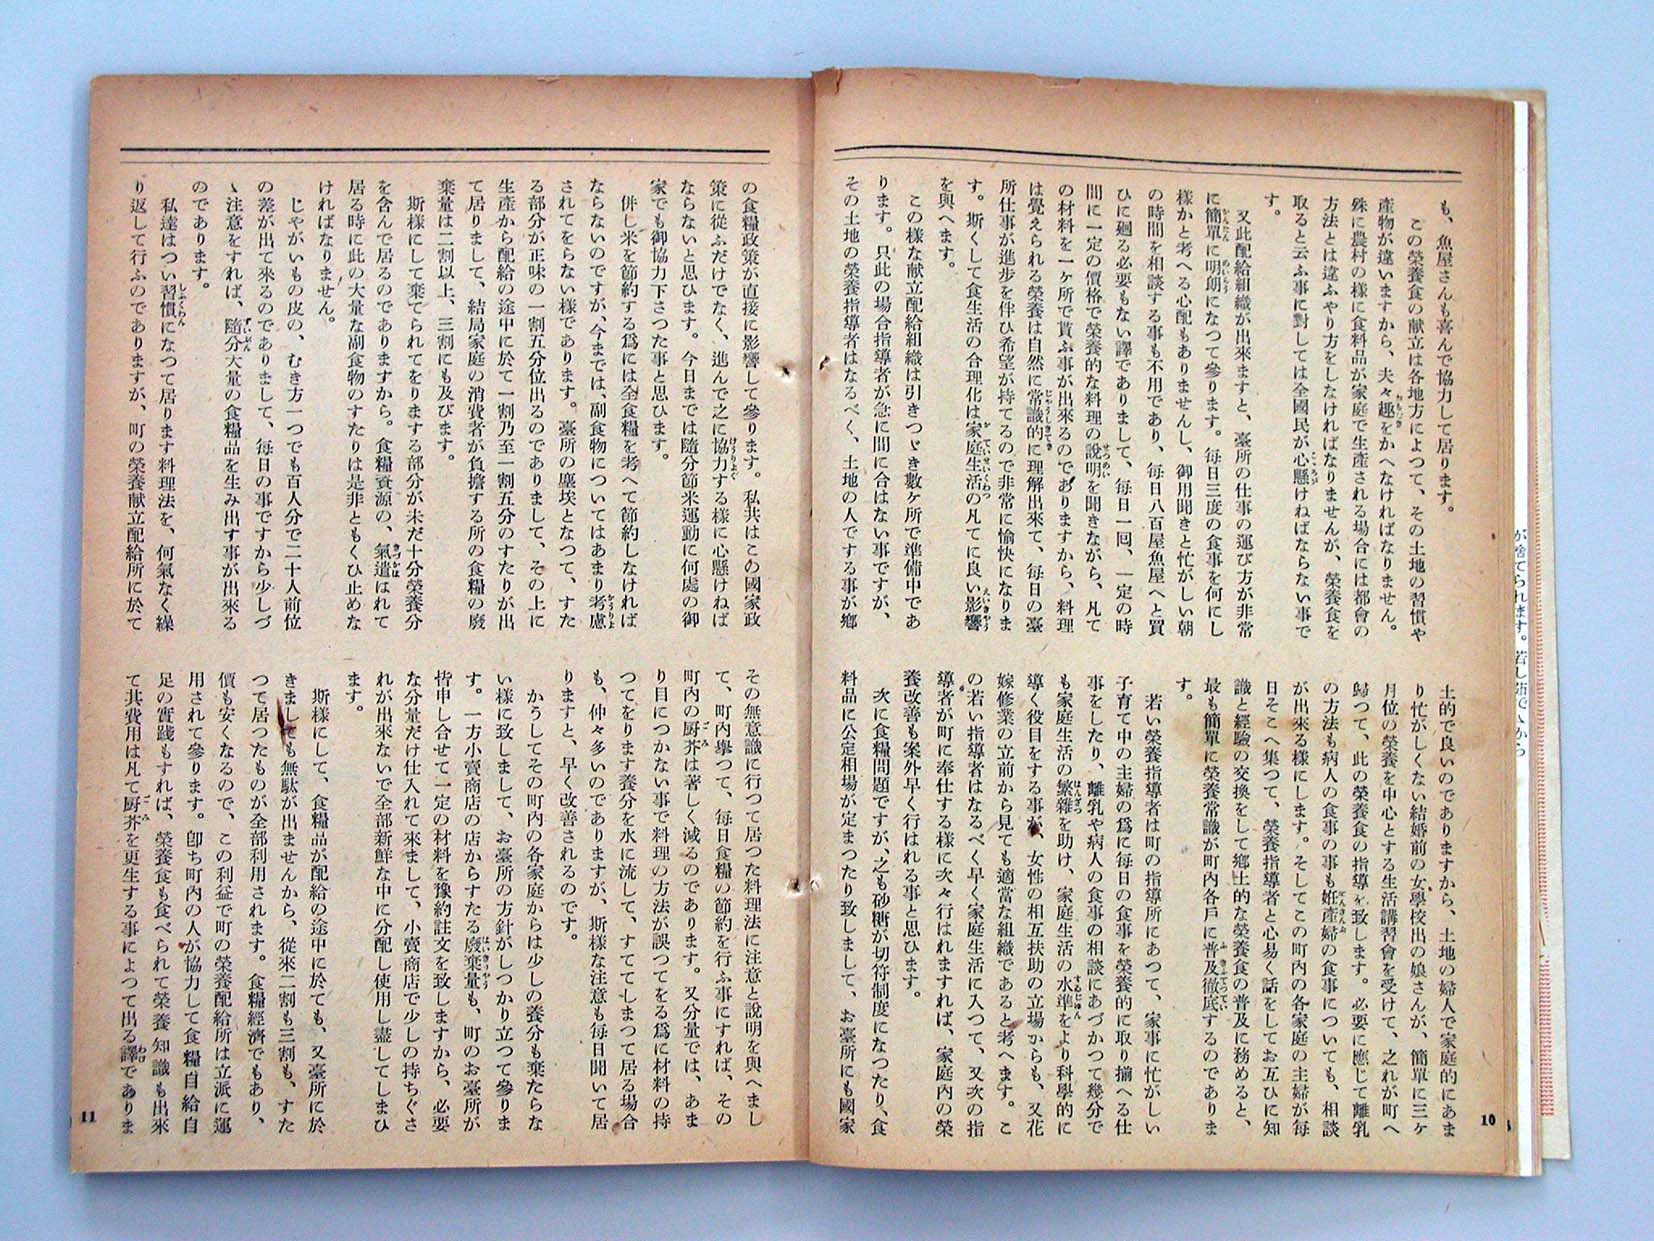 も、魚屋さんも喜んで協力して居ります。
この榮養食の献立は各地方によつて、その土地の習慣や
産物が違いますから、夫々趣をかへなければなりません。
殊に農村の樣に食料品が家庭で生産される場合には都會の
方法とは違ふやり方をしなければなりませんが、榮養食を
取ると云ふ事に對しては全國民が心懸けねばならない事で
す。
又此配給組織が出來ますと、臺所の仕事の運び方が非常
に簡單に明朗になつて參ります。毎日三度の食事を何にし
樣かと考へる心配もありませんし、御用聞きと忙がしい朝
の時間を相談する事も不用であり、毎日八百屋魚屋へと買
ひに廻る必要もない譯でありまして、毎日一回、一定の時
間に一定の價格で榮養的な料理の說明を聞きながら、凡て
の材料を一ケ所で貰ふ事が出來るのでありますから、料理
は覺えられる榮養は自然に常識的に理解出來て、毎日の臺
所仕事が進步を伴ひ希望が持てるので非常に愉快になりま
す。斯くして食生活の合理化は家庭生活の凡てに良い影響
を與へます。
この樣な献立配給組織は引きつゞき數ケ所で準備中であ
ります。只此の場合指導者が急に間に合はない事ですが、
その土地の榮養指導者はなるべく、土地の人でする事が鄕
土的で良いのでありますから、土地の婦人で家庭的にあま
り忙がしくない結婚前の女學校出の娘さんが、簡單に三ケ
月位の榮養を中心とする生活講習會を受けて、之れが町へ
歸つて、此の榮養食の指導を致します。必要に應じて離乳
の方法も病人の食事の事も姙產婦の食事についても、相談
が出來る樣にします。そしてこの町內の各家庭の主婦が每
日そこへ集つて、榮養指導者と心易く話をしてお互ひに知
識と經驗の交換をして鄕土的な榮養食の普及に務めると、
最も簡單に榮養常識が町內各戶に普及徹底するのでありま
す。
若い榮養指導者は町の指導所にあつて、家事に忙がしい
子育て中の主婦の爲に每日の食事を榮養的に取り揃へる仕
事をしたり、離乳や病人の食事の相談にあづかつて幾分で
も家庭生活の繁雜を助け、家庭生活の水準をより科學的に
導く役目をする事が、女性の相互扶助の立場からも、又花
嫁修業の立前から見ても適當な組織であると考へます。こ
の若い指導者はなるべく早く家庭生活に入つて、又次の指
導者が町に奉仕する樣に次々行はれますれば、家庭內の榮
養改善も案外早く行はれる事と思ひます。
次に食糧問題ですが、之も砂糖が切符制度になつたり、食
料品に公定相場が定まつたり致しまして、お臺所にも國家
10
の食糧政策が直接に影響して參ります。私共はこの國家政
策に從ふだけでなく、進んで之に協力する樣に心懸けねば
ならないと思ひます。今日までは隨分節米運動に何處の御
家でも御協力下さつた事と思ひます。
併し米を節約する爲には全食糧を考へて節約しなければ
ならないのですが、今までは、副食物についてはあまり考慮
されてをらない樣であります。臺所の塵埃となつて、すた
る部分が正味の一割五分位出るのでありまして、その上に
生產から配給の途中に於て一割乃至一割五分のすたりが出
て居りまして、結局家庭の消費者が負擔する所の食糧の廢
棄量は二割以上、三割にも及びます。
斯樣にして棄てられてをりまする部分が未だ十分榮養分
を含んで居るのでありますから。食糧資源の、氣遣はれて
居る時に此の大量な副食物のすたりは是非ともくひ止めな
ければなりません。
じやがいもの皮の、むき方一つでも百人分で二十人前位
の差が出て來るのでありまして、每日の事ですから少しづ
ゝ注意をすれば、隨分大量の食糧品を生み出す事が出來る
のであります。
私達はつい習慣になつて居ります料理法を、何氣なく繰
り返して行ふのでありますが、町の榮養献立配給所に於て
その無意識に行つて居つた料理法に注意と說明を與へまし
て、町內擧つて、每日食糧の節約を行ふ事にすれば、その
町內の厨芥は著しく減るのであります。又分量では、あま
り目につかない事で料理の方法が誤つてをる爲に材料の持
つてをります養分を水に流して、すててしまつて居る場合
も、仲々多いのでありますが、斯樣な注意も每日聞いて居
りますと、早く改善されるのです。
かうしてその町內の各家庭からは少しの養分も棄たらな
い樣に致しまして、お臺所の方針がしつかり立つて參りま
す。一方小賣商店の店からすたる廢棄量も、町のお臺所が
皆申し合せて一定の材料を豫約註文を致しますから、必要
な分量だけ仕入れて來まして、小賣商店で少しの持ちぐさ
れが出來ないで全部新鮮な中に分配し使用し盡してしまひ
ます。
斯樣にして、食糧品が配給の途中に於ても、又臺所に於
きましても無駄が出ませんから、從來二割も三割も、すた
つて居つたものが全部利用されます。食糧經濟でもあり、
價も安くなるので、この利益で町の榮養配給所は立派に運
用されて參ります。卽ち町內の人が協力して食糧自給自
足の實踐もすれば、榮養食も食べられて榮養知識も出來
て其費用は凡て厨芥を更生する事によつて出る譯でありま
11